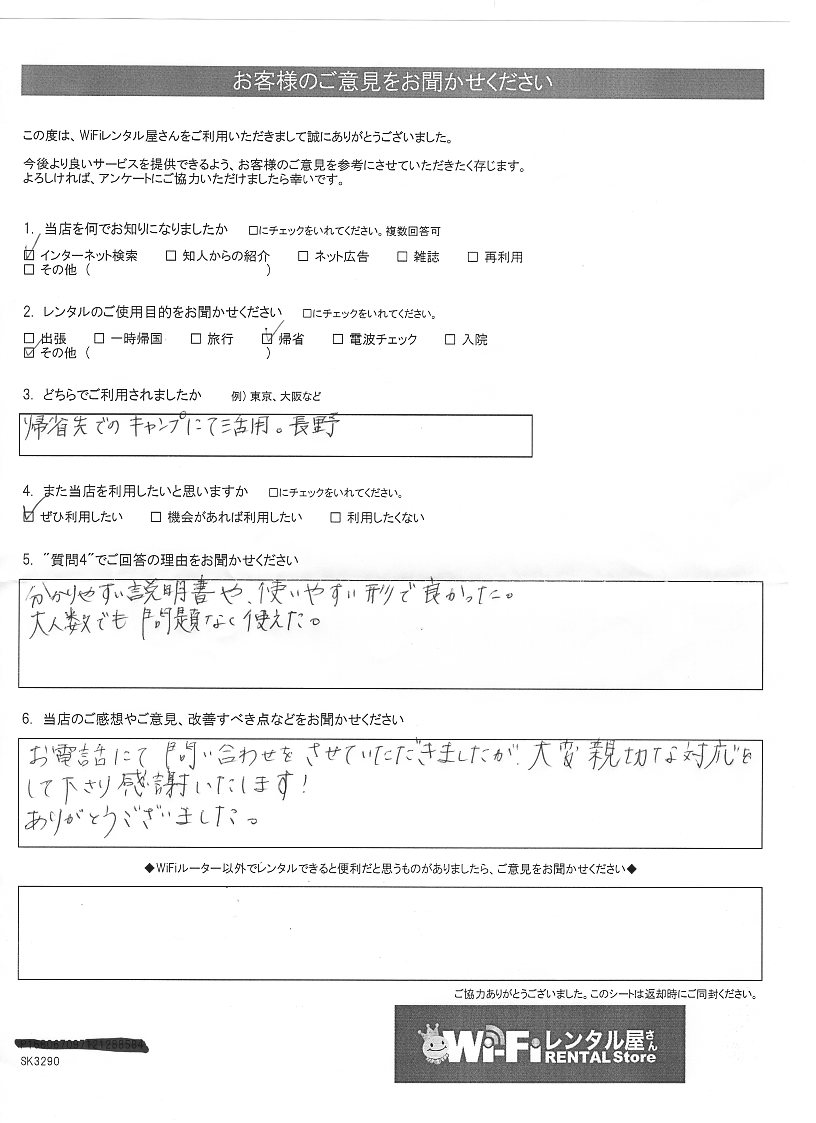 お客様のご意見をお聞かせください
この度は、WiFiレンタル屋さんをご利用いただきまして誠にありがとうございました。
今後より良いサービスを提供できるよう、お客様のご意見を参考にさせていただきたく存じます。
よろしければ、アンケートにご協力いただけましたら幸いです。
1. 当店を何でお知りになりましたか □にチェックをいれてください。複数回答可
☑ インターネット検索 □ 知人からの紹介 □ ネット広告 □ 雑誌 □ 再利用
□ その他 ( )
2. レンタルのご使用目的をお聞かせください □にチェックをいれてください。
□ 出張 □ 一時帰国 □ 旅行 ☑ 帰省 □ 電波チェック □ 入院
☑ その他 ( )
3. どちらでご利用されましたか 例) 東京、大阪など
帰省先でのキャンプにて活用。長野
4. また当店を利用したいと思いますか □にチェックをいれてください。
☑ ぜひ利用したい □ 機会があれば利用したい □ 利用したくない
5. "質問4"でご回答の理由をお聞かせください
分かりやすい説明書や、使いやすい形で良かった。
大人数でも問題なく使えた。
6. 当店のご感想やご意見、改善すべき点などをお聞かせください
お電話にて問い合わせをさせていただきましたが、大変親切な対応を
して下さり感謝いたします!
ありがとうございました。
◆WiFiルーター以外でレンタルできると便利だと思うものがありましたら、ご意見をお聞かせください◆
ご協力ありがとうございました。このシートは返却時にご同封ください。
SK3290
Wi-Fiレンタル屋さん
RENTAL Store